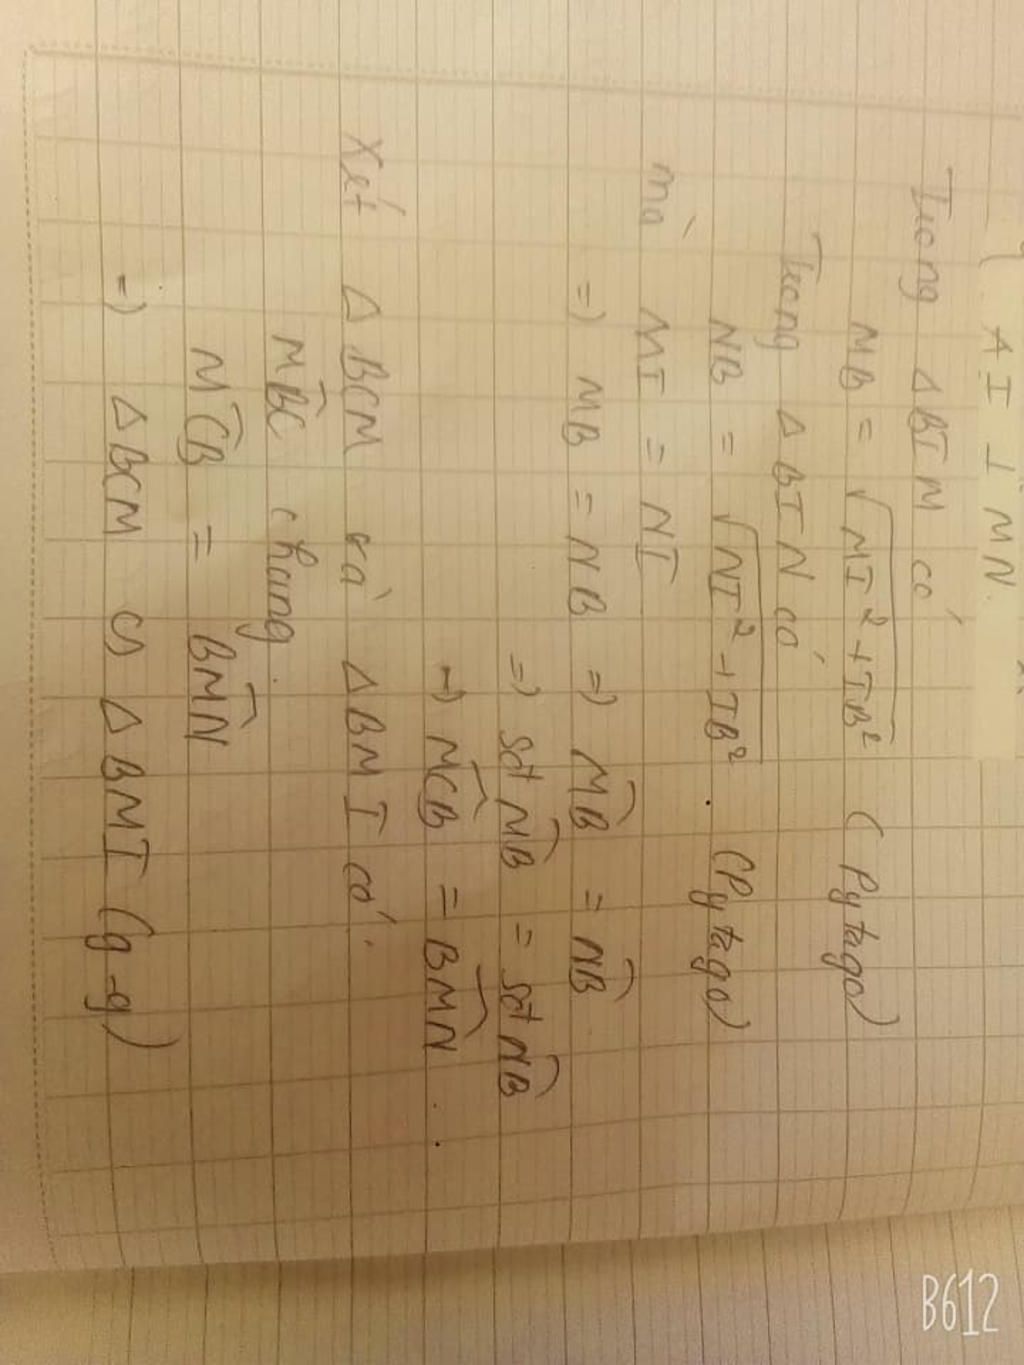 AI ⊥ MN.
Trong Δ BIM có
MB = √MI² + IB² ( Pytago)
Trong Δ BIN có
NB = √NI² + IB² . (Pytago)
mà MI = NI
=) MB = NB =) M͡B = N͡B
=) sđt M͡B = sđt N͡B
=) M͡CB = B͡MN .
Xét Δ BCM và Δ BMI có.
M͡BC chung.
M͡CB = B͡MN
=) Δ BCM ᔕ Δ BMI (g-g)
B612